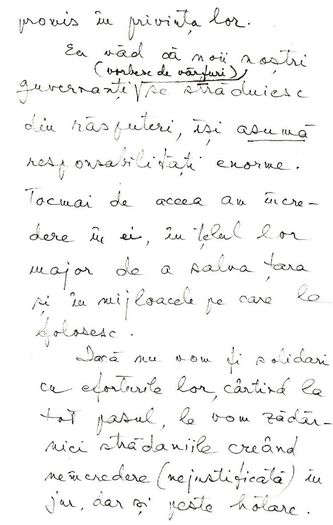 promis în privința lor.
Eu văd că noii noștri
(vorbesc de vârfuri)
guvernanți se străduiesc
din răsputeri, își asumă
responsabilități enorme.
Tocmai de aceea am încre-
dere în ei, în țelul lor
major de a salva țara
și în mijloacele pe care le
folosesc.
Dacă nu vom fi solidari
cu eforturile lor, cârtind la
tot pasul, le vom zădăr-
nici strădaniile creând
neîncredere (nejustificată) în
jur, dar și peste hotare.